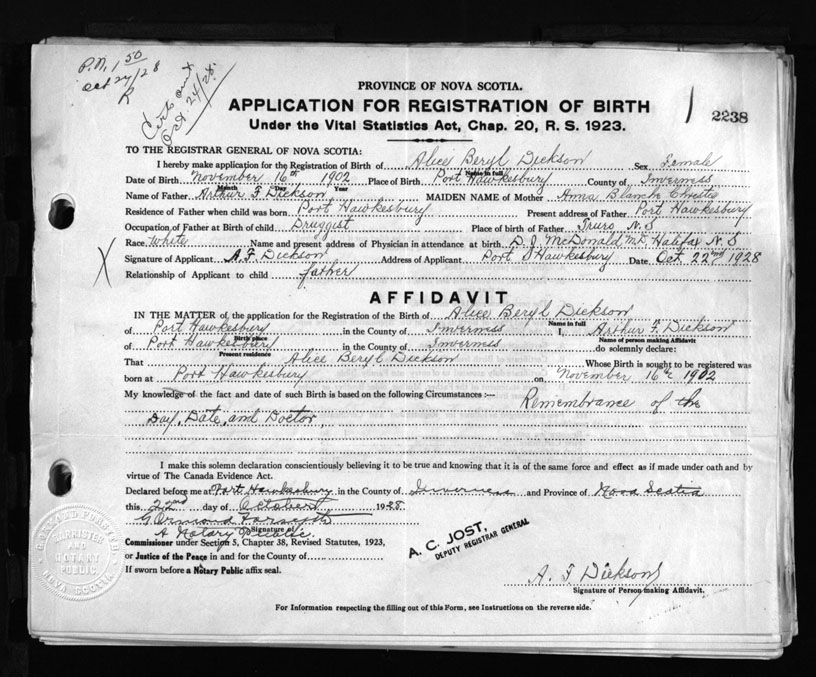 P.N. 1 50
Oct 24/28
R
Cert. out
Oct 24/28.
PROVINCE OF NOVA SCOTIA.
APPLICATION FOR REGISTRATION OF BIRTH
1 2238
Under the Vital Statistics Act, Chap. 20, R. S. 1923.
TO THE REGISTRAR GENERAL OF NOVA SCOTIA:
I hereby make application for the Registration of Birth of Alice Beryl Dickson Sex Female
Name in full
Date of Birth November 16th 1902 Place of Birth Port Hawkesbury County of Inverness
Month Day Year
Name of Father Arthur F Dickson MAIDEN NAME of Mother Anna Blanch
Residence of Father when child was born Port Hawkesbury Present address of Father Port Hawkesbury
Occupation of Father at Birth of child Druggist Place of birth of Father Truro N.S
Race White Name and present address of Physician in attendance at birth D. J. McDonald, M.D, Halifax N.S
X Signature of Applicant A. F Dickson Address of Applicant Port Hawkesbury Date Oct 22nd 1928
Relationship of Applicant to child father
AFFIDAVIT
IN THE MATTER of, the application for the Registration of the Birth of Alice Beryl Dickson
Name in full
of Port Hawkesbury in the County of Inverness I, Arthur F. Dickson
Birth place Name of person making Affidavit
of Port Hawkesbury in the County of Inverness do solemnly declare:
Present residence
That Alice Beryl Dickson Whose Birth is sought to be registered was
born at Port Hawkesbury on November 16th 1902
My knowledge of the fact and date of such Birth is based on the following Circumstances :— Remembrance of the
Day, Date, and Doctor,
I make this solemn declaration conscientiously believing it to be true and knowing that it is of the same force and effect as if made under oath and by
virtue of The Canada Evidence Act.
Declared before me at Port Hawkesbury in the County of Inverness and Province of Nova Scotia
this 22nd day of October 1928
G Ormond Forsyth
Signature of
A Notary Public.
Commissioner under Section 5, Chapter 38, Revised Statutes, 1923,
or Justice of the Peace in and for the County of
If sworn before a Notary Public affix seal.
A. C. JOST,
DEPUTY REGISTRAR GENERAL
A. F Dickson
Signature of Person making Affidavit.
BARRISTER
AND
NOTARY
PUBLIC
NOVA SCOTIA
For Information respecting the filling out of this Form, see Instructions on the reverse side.